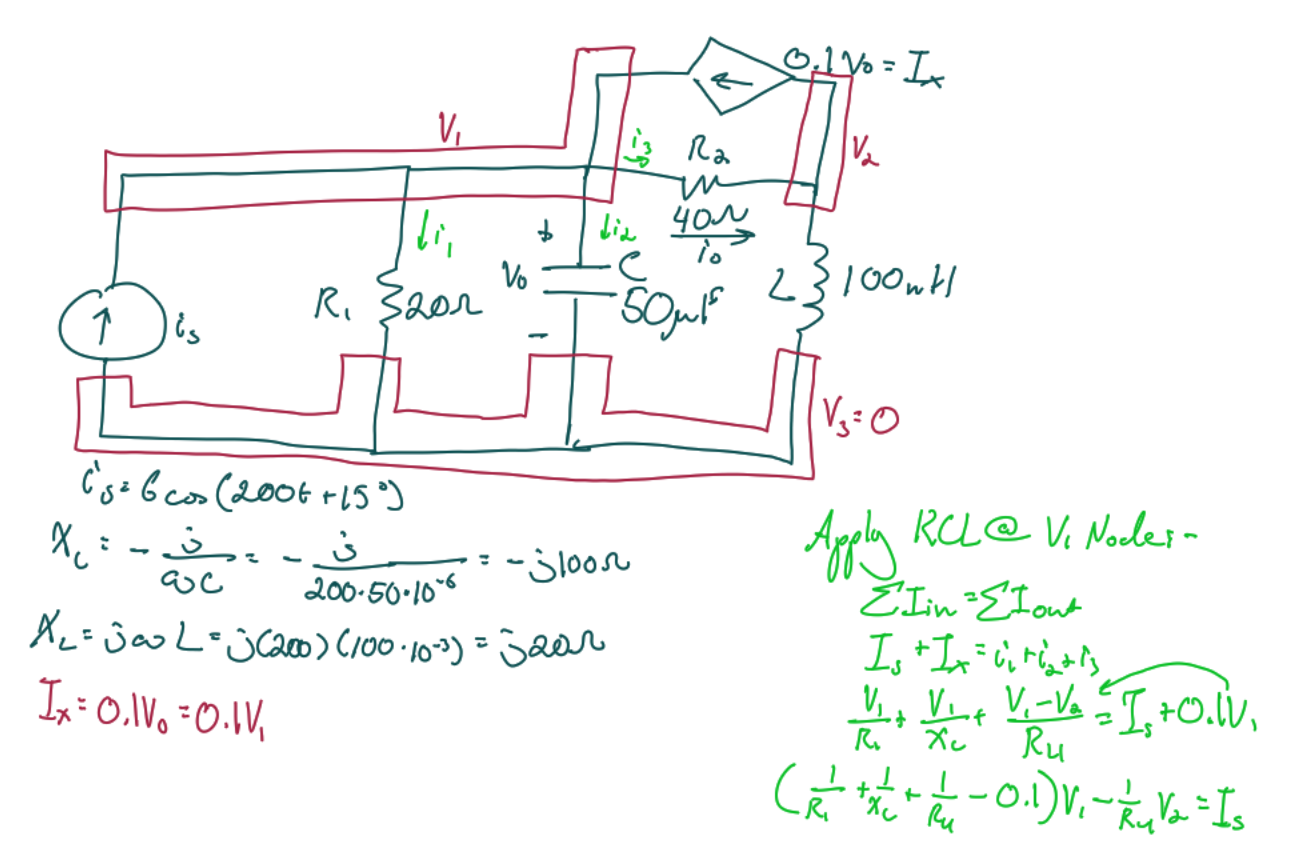 0.1V₀ = Iₓ
V₁
i₃
R₂
V₂
40Ω
i₀
i₁
+
i₂
V₀
C
50μF
-
L
100mH
R₁
20Ω
iₛ
V₃=0
iₛ = 6cos(200t+15°)
X_C = -j/ωC = -j/200·50·10⁻⁶ = -j100Ω
X_L = jωL = j(200)(100·10⁻³) = j20Ω
Iₓ = 0.1V₀ = 0.1V₁
Apply KCL @ V₁ Node:-
ΣIin = ΣIout
Iₛ + Iₓ = i₁+i₂+i₃
V₁/R₁ + V₁/X_C + V₁-V₂/R₄ = Iₛ+0.1V₁
(1/R₁ + 1/X_C + 1/R₄ - 0.1)V₁ - 1/R₄ V₂ = Iₛ